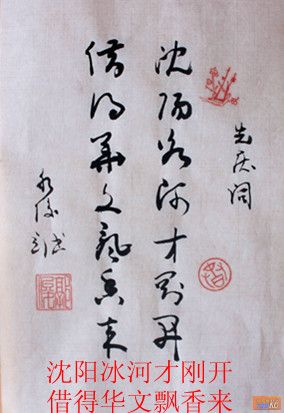 先庆词
沈阳冰河才刚开
借得華文飘香来
沈阳冰河才刚开
借得华文飘香来